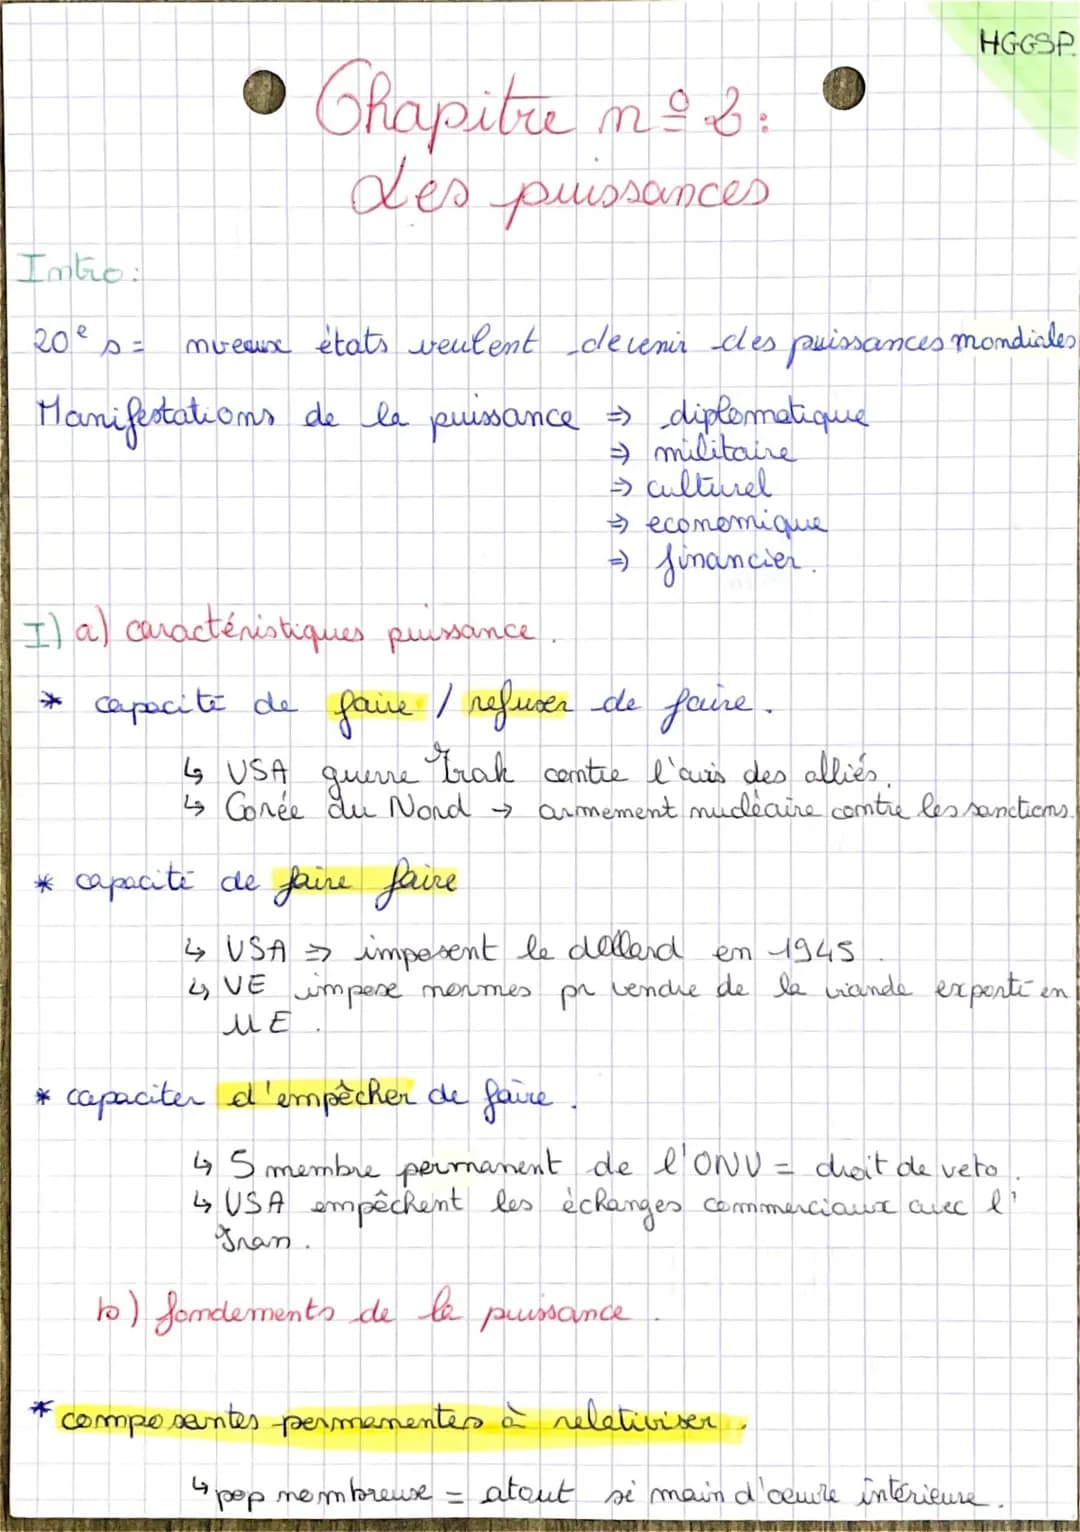 HGGSP.
Chapitre nº 2:
Les puissances
Intro:
20e s = nveaux états veulent devenir des puissances mondiales
Manifestations de la puissance ⇒ diplomatique
⇒ militaire
⇒ culturel
⇒ economique
⇒ financier.
I) a) caractéristiques puissance.
* capacité de faire / refuser de faire.
↳ USA guerre Irak contre l'avis des alliés.
↳ Corée du Nord → armement nucléaire contre les sanctions.
* capacité de faire faire
↳ USA ⇒ imposent le dollard en 1945.
↳ UE impose normes pr vendre de la viande exporté en
UE.
* capaciter d'empêcher de faire.
↳ 5 membre permanent de l'ONU = droit de veto.
↳ USA empêchent les échanges commerciaux avec l'
Iran.
b) fondements de la puissance.
* composantes permanentes à relativiser.
↳ pop nombreuse = atout si main d'œuvre intérieure.